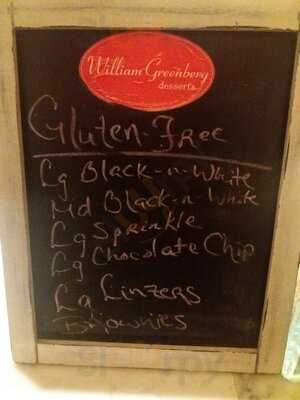 William Greenberg
desserts
Gluten-Free
Lg Black-n-White
Md Black-n-White
Lg Sprinkle
Lg Chocolate Chip
Lg Linzers
Brownies